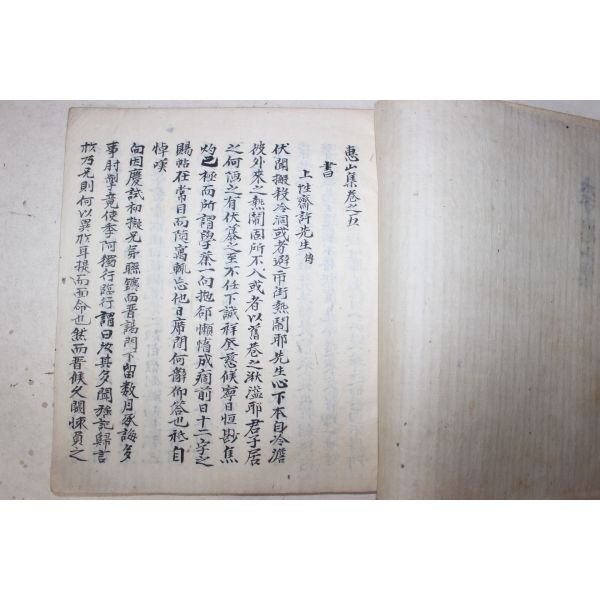 惠山集卷之五
書
上性齋許先生 傳
伏聞搬移冷洞或者避市街熱鬧耶先生心下本自冷澹
彼外來之熱鬧固所不入或者以舊巷之湫溢耶君子居
之何陋之有伏慕之至不任下誠祥 慈候寧日恒尠焦
灼已極而所謂學業一向抛却懶惰成痼前日十二字之
賜帖在常目而隨寓輒忘他日席間何辭仰答也秪自
悼嘆
向因慶試初擬兄弟聯鑣而晋謁門下留數月承誨多
事肘掣竟使季阿獨行臨行謂曰汝其多聞強記歸言
於乃兄則何以異於耳提而面命也然而晋候久闕悚負之